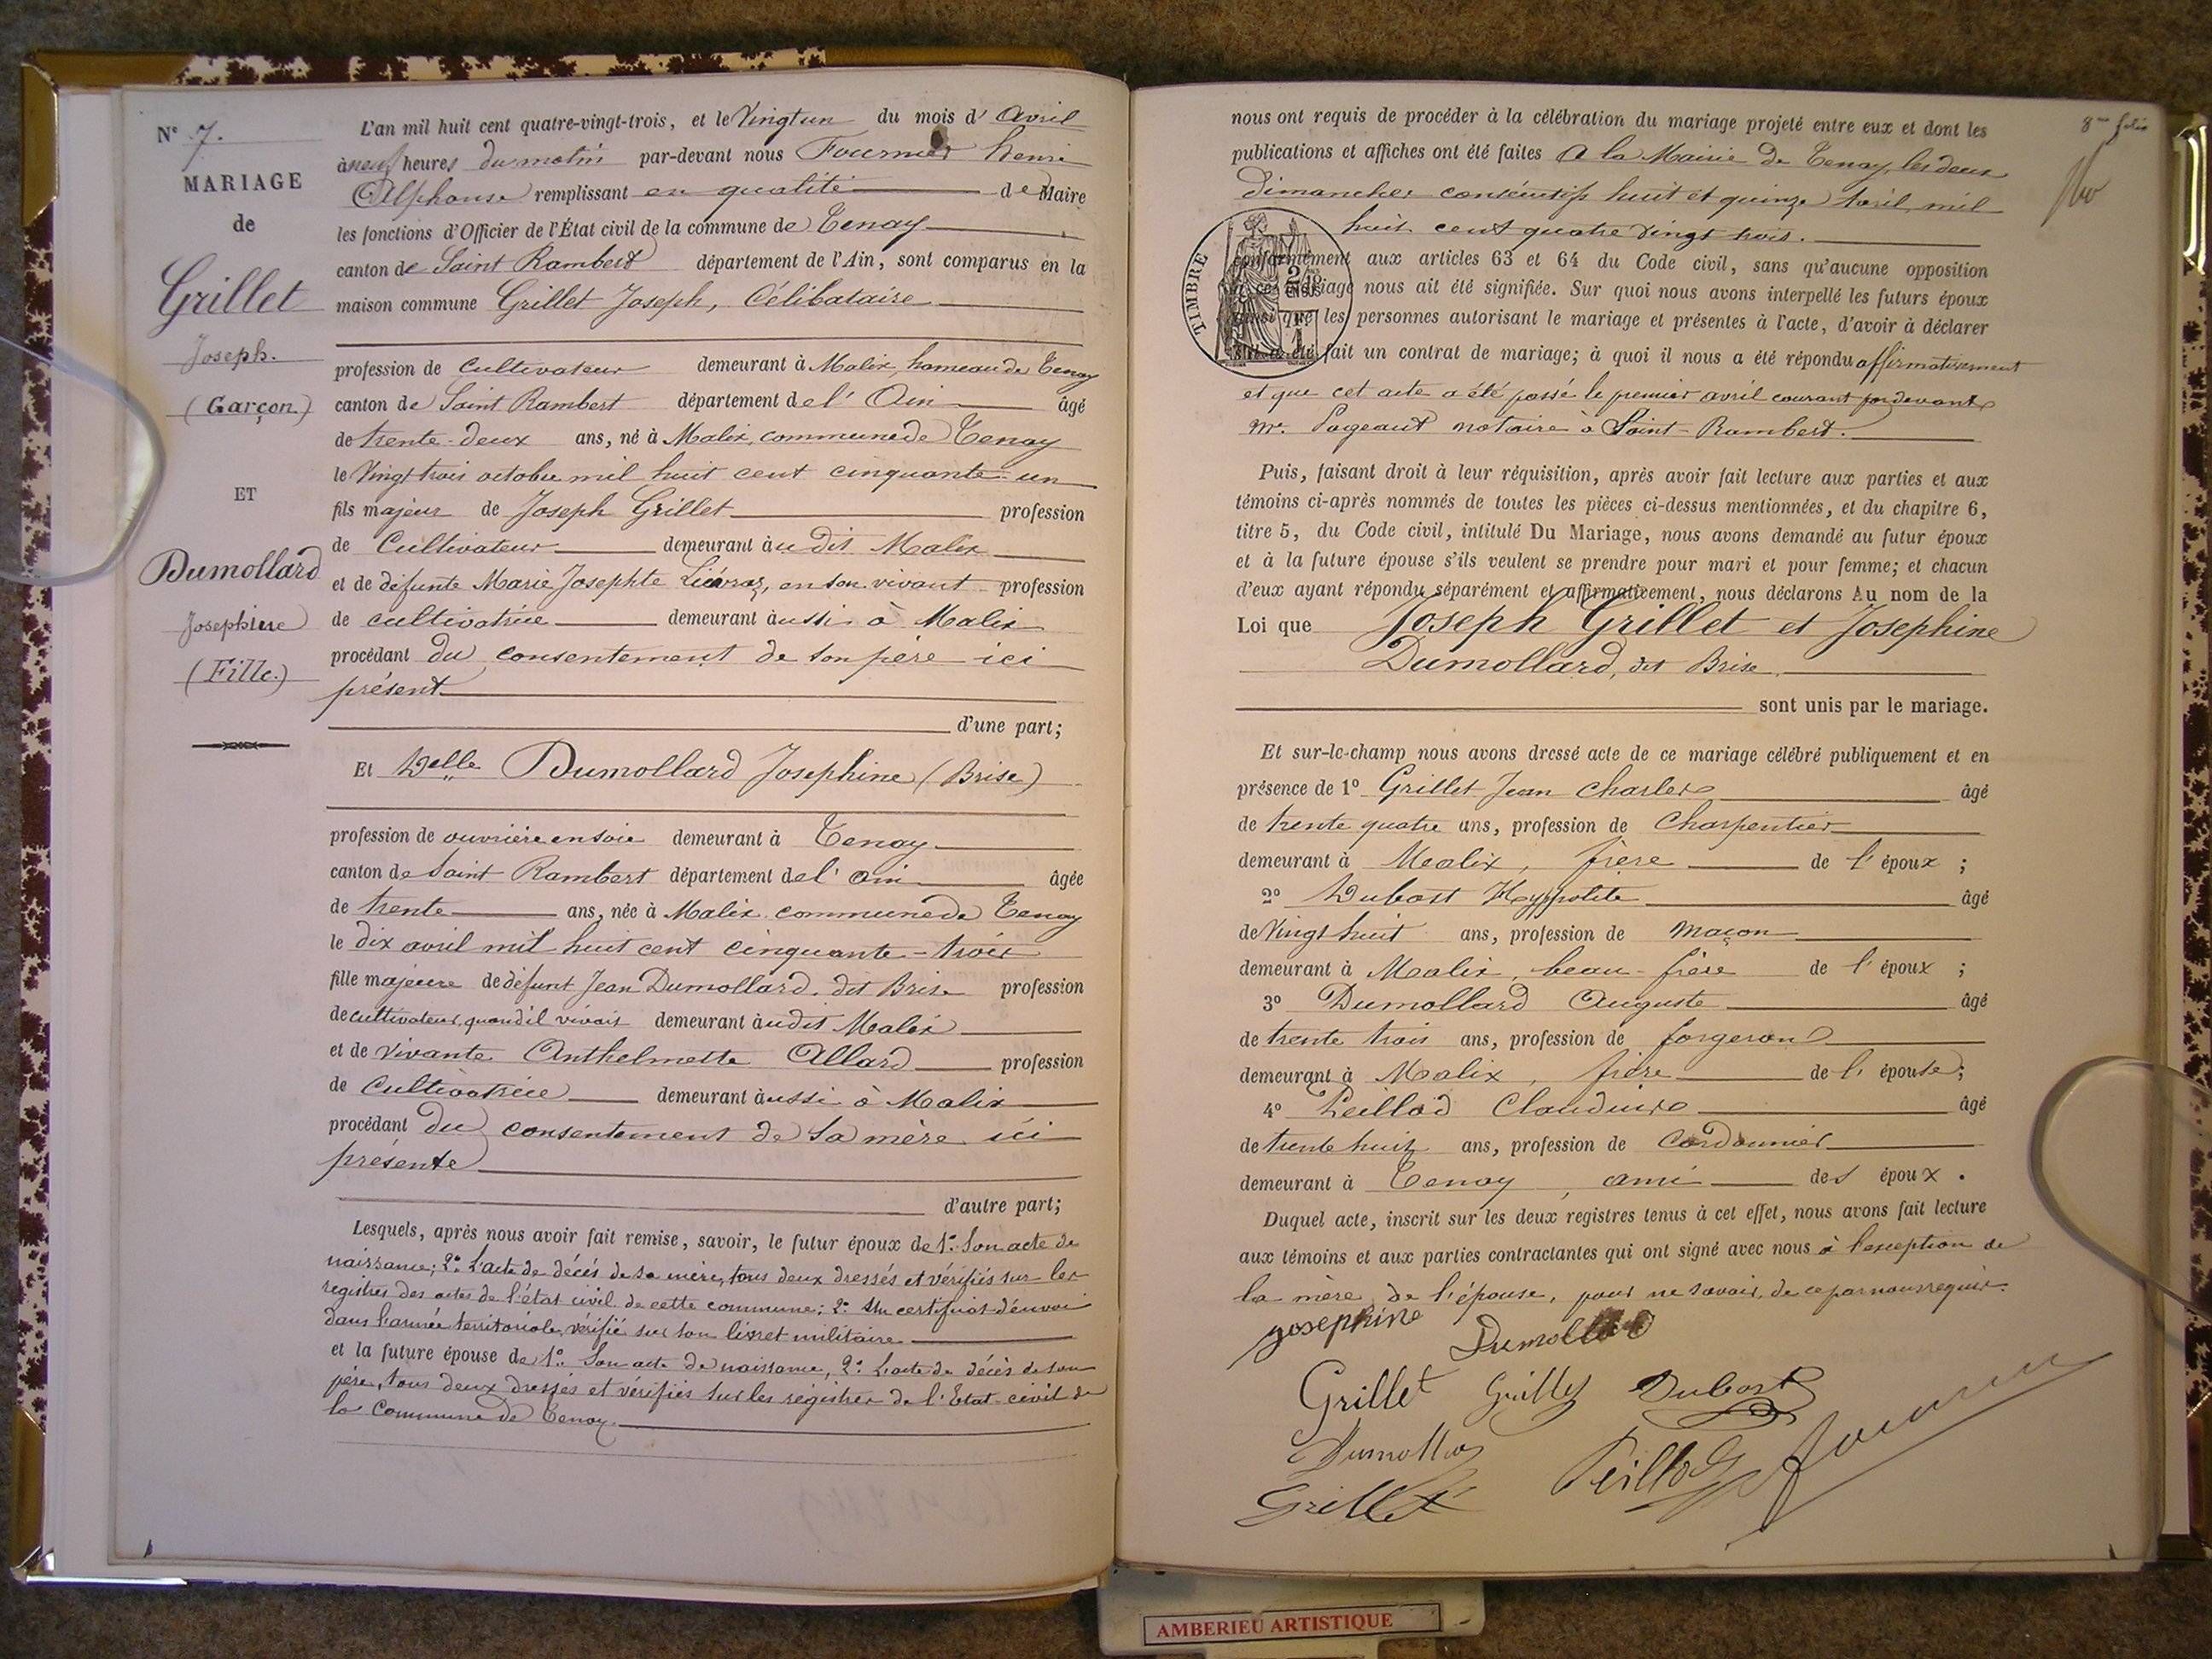 N° 7.
MARIAGE
de
Grillet
Joseph.
(Garçon)
ET
Dumollard
Josephine
(Fille.)
L'an mil huit cent quatre-vingt-trois, et le Vingt un du mois d'Avril
à neuf heures du matin par-devant nous Fournier henri
Alphonse remplissant en qualité de Maire
les fonctions d'Officier de l'État civil de la commune de Tenay
canton de Saint Rambert département de l'Ain, sont comparus en la
maison commune Grillet Joseph, Célibataire
profession de Cultivateur demeurant à Malix, hameau de Tenay
canton de Saint Rambert département de l'Ain âgé
de trente-deux ans, né à Malix, commune de Tenay
le Vingt trois octobre mil huit cent cinquante-un
fils majeur de Joseph Grillet profession
de Cultivateur demeurant àu dit Malix
et de défunte Marie Josephte en son vivant profession
de cultivatrice demeurant àussi à Malix
procédant du consentement de son père ici
présent
d'une part;
Et Delle Dumollard Josephine (Brise)
profession de ouvrière en soie demeurant à Tenay
canton de Saint Rambert département de l'ain âgée
de trente ans, née à Malix commune de Tenay
le dix avril mil huit cent cinquante-trois
fille majeure de défunt Jean Dumollard, dit Brise profession
de cultivateur, quand il vivait demeurant àu dit Malix
et de vivante Anthelmette Allard profession
de Cultivatrice demeurant àussi à Malix
procédant du consentement de sa mère ici
présente
d'autre part;
Lesquels, après nous avoir fait remise, savoir, le futur époux de 1°. Son acte de
naissance; 2°. L'acte de décès de sa mère, tous deux dressés et vérifiés sur les
registres des actes de l'état civil de cette commune; 2°. Un certificat d'envoi
dans l'armée territoriale, vérifié sur son livret militaire
et la future épouse de 1°. Son acte de naissance, 2°. L'acte de décès de son
père, tous deux dressés et vérifiés sur les registres de l'Etat-civil de
la Commune de Tenay.
8me folio
nous ont requis de procéder à la célébration du mariage projeté entre eux et dont les
publications et affiches ont été faites à la Mairie de Tenay, les deux
dimanches consécutifs huit et quinze Avril, mil
huit cent quatre vingt trois.
TIMBRE
conformément aux articles 63 et 64 du Code civil, sans qu'aucune opposition
à ce mariage nous ait été signifiée. Sur quoi nous avons interpellé les futurs époux
ainsi que les personnes autorisant le mariage et présentes à l'acte, d'avoir à déclarer
s'il a été fait un contrat de mariage; à quoi il nous a été répondu affirmativement
et que cet acte a été passé le premier avril courant par devant
Me. Pageaut notaire à Saint-Rambert.
Puis, faisant droit à leur réquisition, après avoir fait lecture aux parties et aux
témoins ci-après nommés de toutes les pièces ci-dessus mentionnées, et du chapitre 6,
titre 5, du Code civil, intitulé Du Mariage, nous avons demandé au futur époux
et à la future épouse s'ils veulent se prendre pour mari et pour femme; et chacun
d'eux ayant répondu séparément et affirmativement, nous déclarons Au nom de la
Loi que Joseph Grillet et Josephine
Dumollard, dit Brise
sont unis par le mariage.
Et sur-le-champ nous avons dressé acte de ce mariage célébré publiquement et en
présence de 1° Grillet Jean Charles âgé
de trente quatre ans, profession de Charpentier
demeurant à Malix, frère de l'époux ;
2° Dubost Hyppolite âgé
de Vingt huit ans, profession de Maçon
demeurant à Malix, beau-frère de l'époux ;
3° Dumollard Auguste âgé
de trente trois ans, profession de forgeron
demeurant à Malix, frère de l'épouse;
4° Peillod Claudius âgé
de trente huit ans, profession de Cordonnier
demeurant à Tenay, ami des époux.
Duquel acte, inscrit sur les deux registres tenus à cet effet, nous avons fait lecture
aux témoins et aux parties contractantes qui ont signé avec nous à l'exception de
la mère de l'épouse, pour ne savoir, de ce par nous requis.
josephine Dumollard
Grillet Grillet Dubost
Dumollard Peillod Fournier
Grillet
AMBERIEU ARTISTIQUE